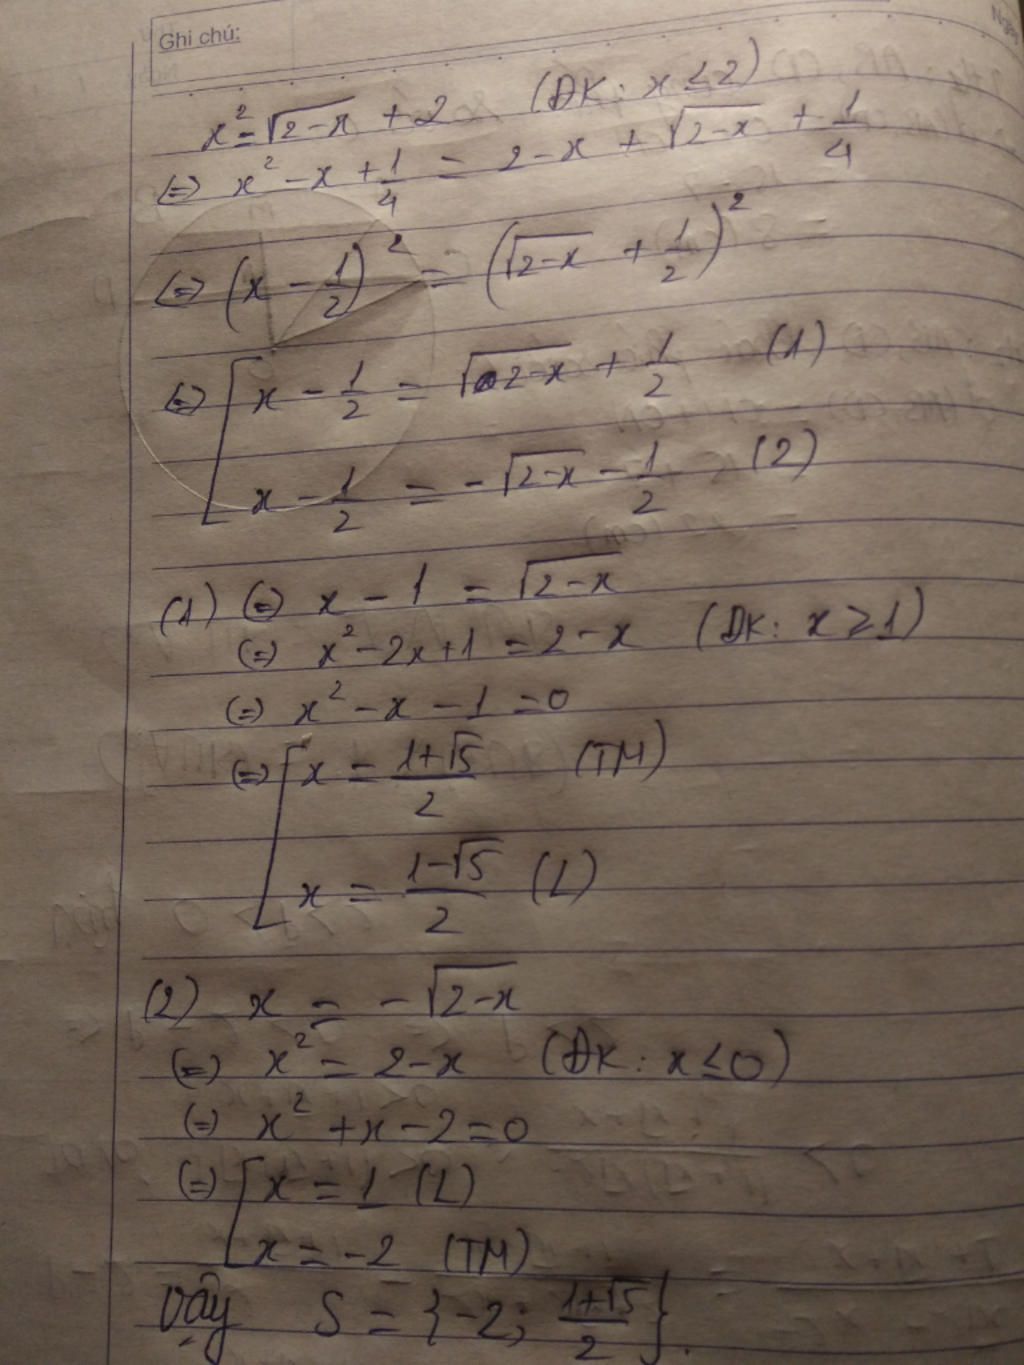 Ghi chú:
x² = √(2-x) + 2 (ĐK: x ≤ 2)
(=) x² - x + 1/4 = 2 - x + √(2-x) + 1/4
(=) (x - 1/2)² = (√(2-x) + 1/2)²
(=) [ x - 1/2 = √(2-x) + 1/2 (1)
x - 1/2 = -√(2-x) - 1/2 (2)
(1) (=) x - 1 = √(2-x)
(=) x² - 2x + 1 = 2 - x (ĐK: x ≥ 1)
(=) x² - x - 1 = 0
(=) [ x = (1+√5)/2 (TM)
x = (1-√5)/2 (L)
(2) x = -√(2-x)
(=) x² = 2 - x (ĐK: x ≤ 0)
(=) x² + x - 2 = 0
(=) [ x = 1 (L)
x = -2 (TM)
Vậy S = {-2; (1+√5)/2}.